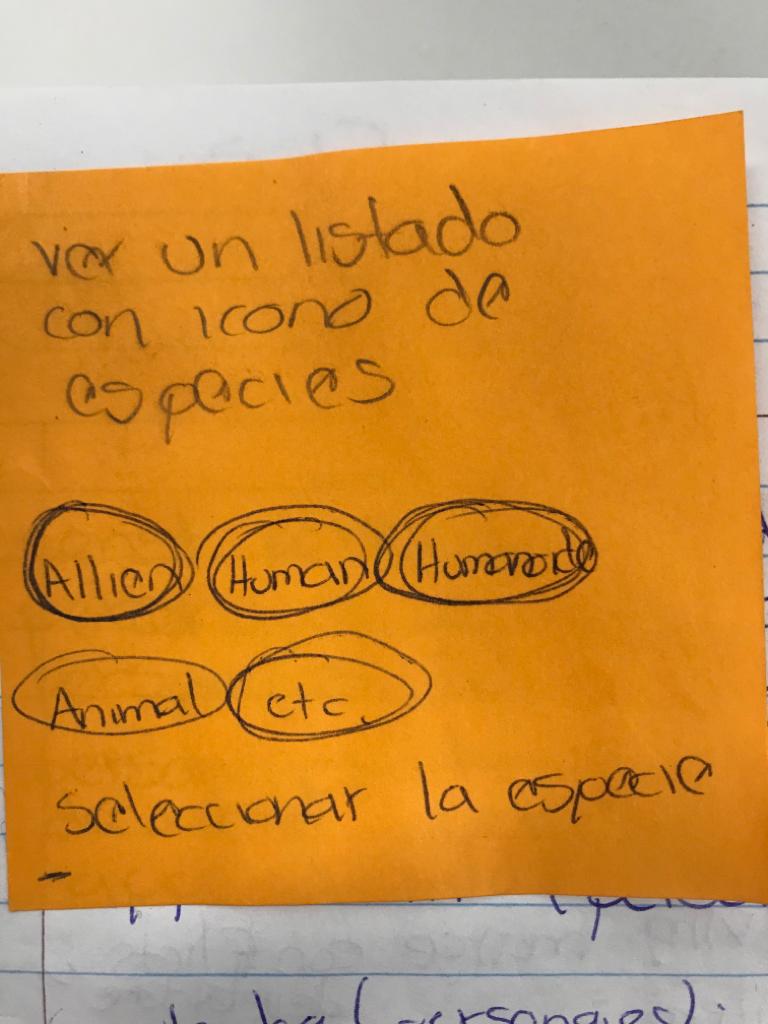 ver un listado
con icono de
especies
Allien Human Humanoide
Animal etc.
seleccionar la especie
-
(personajes).